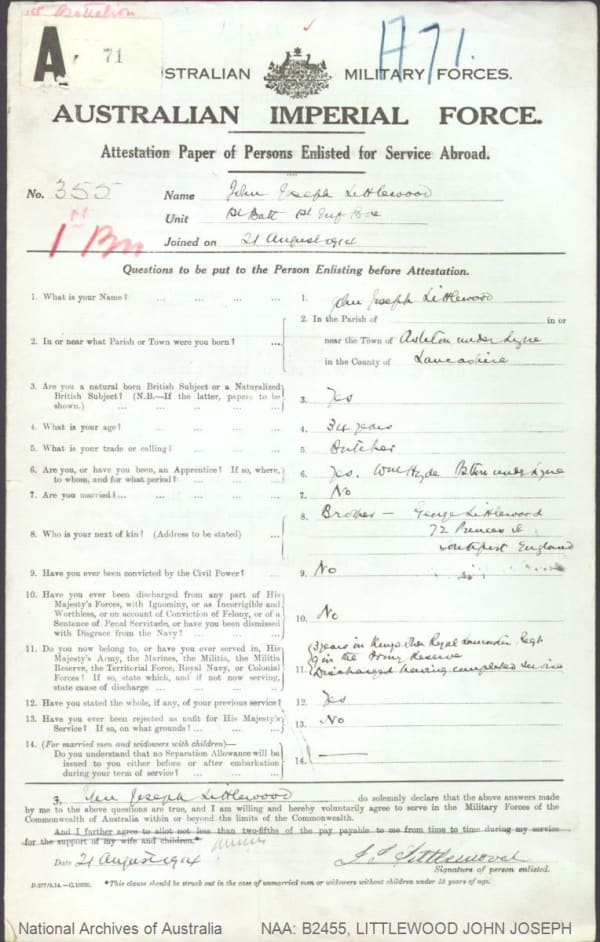 1st Battalion
A. 71
H71.
AUSTRALIAN MILITARY FORCES.
AUSTRALIAN IMPERIAL FORCE.
Attestation Paper of Persons Enlisted for Service Abroad.
No. 355 Name John Joseph Littlewood
Unit 1st Batt 1st Inf Bde
Joined on 21 August 1914
1st Bn
Questions to be put to the Person Enlisting before Attestation.
1. What is your Name? ... ... ... ... 1. John Joseph Littlewood
2. In or near what Parish or Town were you born? ... 2. In the Parish of in or
near the Town of Ashton under Lyne
in the County of Lancashire
3. Are you a natural born British Subject or a Naturalized
British Subject? (N.B.—If the latter, papers to be
shown.) ... ... ... ... 3. Yes
4. What is your age? ... ... ... ... 4. 34 years
5. What is your trade or calling? ... ... ... 5. Butcher
6. Are you, or have you been, an Apprentice? If so, where,
to whom, and for what period? ... ... ... 6. Yes. Wm Hyde under Lyne
7. Are you married?... ... ... ... 7. No
8. Who is your next of kin? (Address to be stated) ... 8. Brother — George Littlewood
72 Princes St
Southport England
9. Have you ever been convicted by the Civil Power? ... 9. No
10. Have you ever been discharged from any part of His
Majesty's Forces, with Ignominy, or as Incorrigible and
Worthless, or on account of Conviction of Felony, or of a
Sentence of Penal Servitude, or have you been dismissed
with Disgrace from the Navy? ... ... ... 10. No
11. Do you now belong to, or have you ever served in, His
Majesty's Army, the Marines, the Militia, the Militia
Reserve, the Territorial Force, Royal Navy, or Colonial
Forces? If so, state which, and if not now serving,
state cause of discharge ... ... ... 11. 3 years in Kings Own Royal Lancaster Regt
9 in the Army Reserve
Discharged having completed service
12. Have you stated the whole, if any, of your previous service? 12. Yes
13. Have you ever been rejected as unfit for His Majesty's
Service? If so, on what grounds? ... ... 13. No
14. (For married men and widowers with children)—
Do you understand that no Separation Allowance will be
issued to you either before or after embarkation
during your term of service? ... ... 14. —
I, John Joseph Littlewood do solemnly declare that the above answers made
by me to the above questions are true, and I am willing and hereby voluntarily agree to serve in the Military Forces of the
Commonwealth of Australia within or beyond the limits of the Commonwealth.
And I further agree to allot not less than two-fifths of the pay payable to me from time to time during my service
for the support of my wife and children.*
Date 21 August 1914 J J Littlewood
Signature of person enlisted.
D.377/9.14.—C.10020. *This clause should be struck out in the case of unmarried men or widowers without children under 18 years of age.
National Archives of Australia NAA: B2455, LITTLEWOOD JOHN JOSEPH